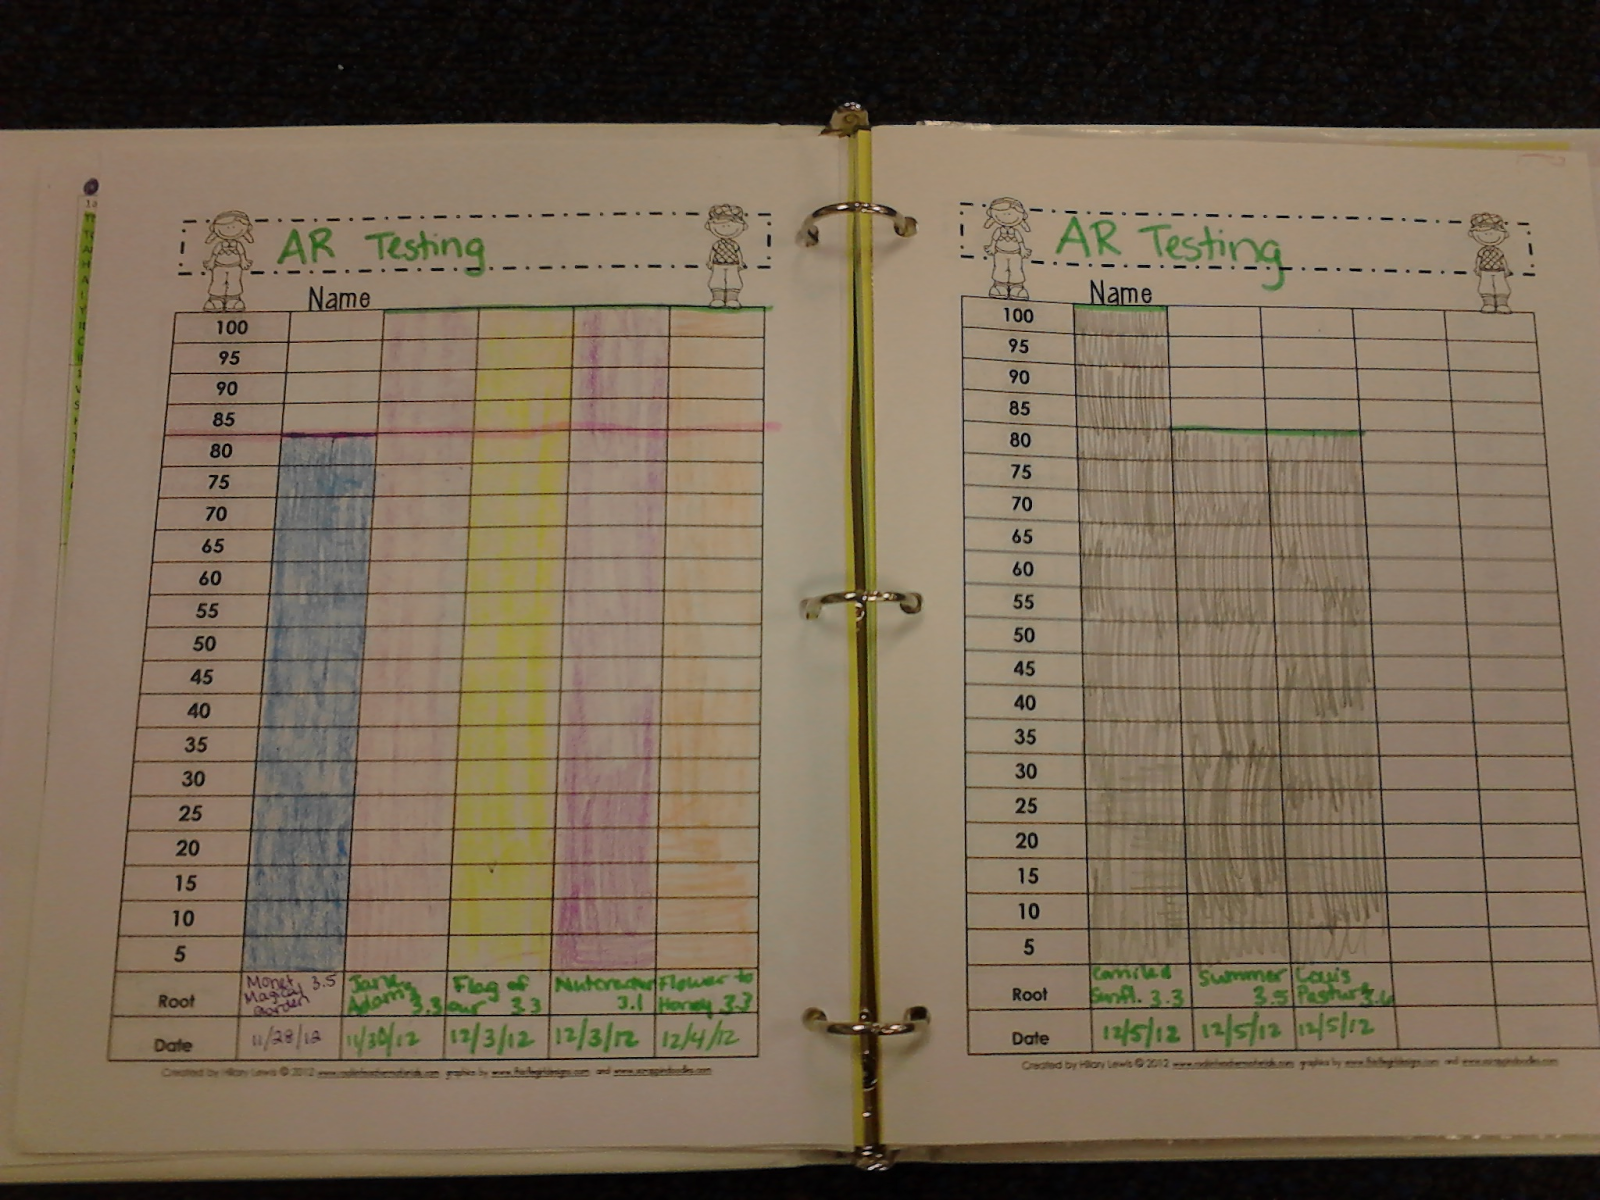 AR Testing
Name
100
95
90
85
80
75
70
65
60
55
50
45
40
35
30
25
20
15
10
5
Root Monet Magical Garden 3.5 Jane Adams 3.3 Flag of our 3.3 Nutcracker 3.1 Flower to Honey 3.3
Date 11/28/12 11/30/12 12/3/12 12/3/12 12/4/12
Created by Hilary Lewis © 2012 graphics by www.thistlegirldesigns.com and www.scrappindoodles.com
AR Testing
Name
100
95
90
85
80
75
70
65
60
55
50
45
40
35
30
25
20
15
10
5
Root Camilled Sunfl. 3.3 Summer 3.5 Louis Pasture 3.6
Date 12/5/12 12/5/12 12/5/12
Created by Hilary Lewis © 2012 graphics by www.thistlegirldesigns.com and www.scrappindoodles.com